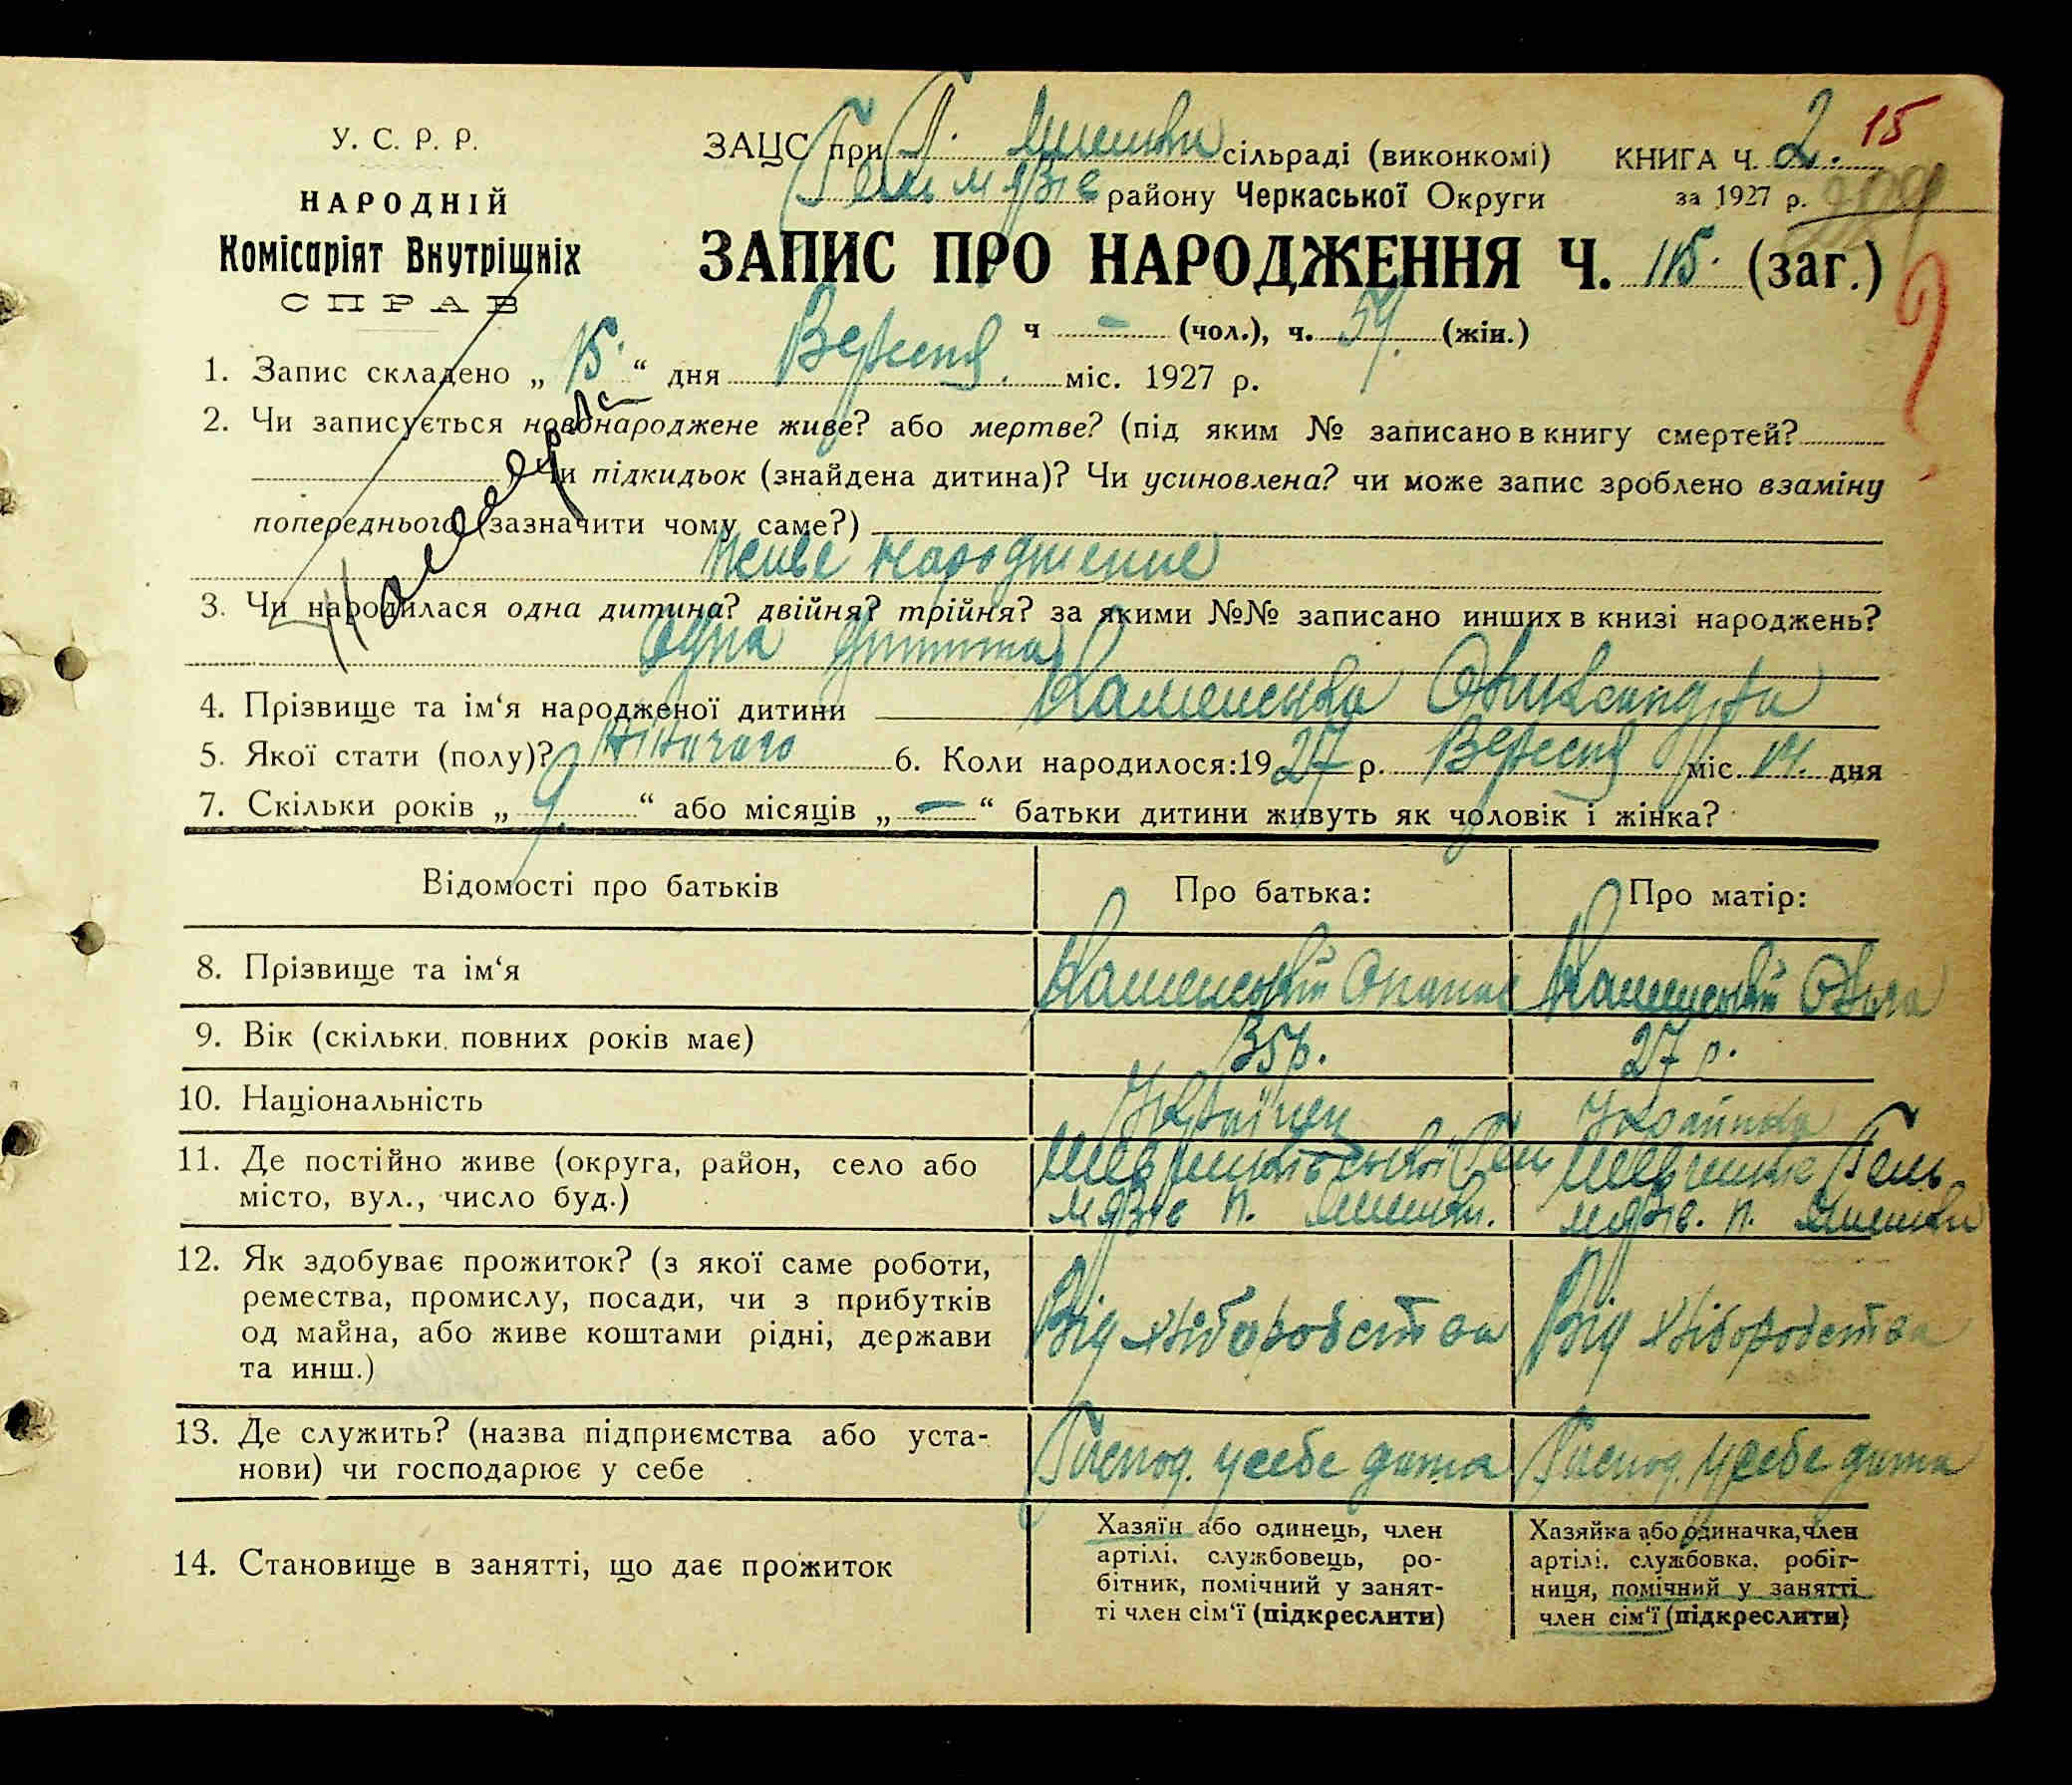 У. С. Р. Р.
НАРОДНІЙ
Комісаріят Внутрішніх
СПРАВ
ЗАЦС при П. сільраді (виконкомі) КНИГА Ч. 2. 15
Гельмязів району Черкаської Округи за 1927 р. 209
ЗАПИС ПРО НАРОДЖЕННЯ Ч. 115. (заг.)
ч — (чол.), ч. 54. (жін.)
1. Запис складено „ 15. “ дня Вересня. міс. 1927 р.
2. Чи записується новонароджене живе? або мертве? (під яким № записано в книгу смертей?
Чи підкидьок (знайдена дитина)? Чи усиновлена? чи може запис зроблено взаміну
попереднього (зазначити чому саме?)
живе народження
3. Чи народилася одна дитина? двійня? трійня? за якими №№ записано инших в книзі народжень?
Одна дитина
4. Прізвище та ім‘я народженої дитини Каменська Олександра
5. Якої стати (полу)? Жіночого 6. Коли народилося: 1927 р. Вересня міс. 14. дня
7. Скільки років „ 9 “ або місяців „ — “ батьки дитини живуть як чоловік і жінка?
Відомості про батьків Про батька: Про матір:
8. Прізвище та ім‘я Каменський Опанас Каменський Ольга
9. Вік (скільки повних років має) 35 р. 27 р.
10. Національність Українец Українка
11. Де постійно живе (округа, район, село або Шевченківської Гель Шевченке Гель
місто, вул., число буд.) мязів п. мязів. п.
12. Як здобуває прожиток? (з якої саме роботи,
ремества, промислу, посади, чи з прибутків
од майна, або живе коштами рідні, держави Від хліборобства Від хліборобства
та инш.)
13. Де служить? (назва підприємства або уста-
нови) чи господарює у себе Господ. у себе дома Господ. у себе дома
14. Становище в занятті, що дає прожиток
Хазяїн або одинець, член
артілі, службовець, ро-
бітник, помічний у занят-
ті член сім‘ї (підкреслити)
Хазяйка або одиначка, член
артілі, службовка, робіт-
ниця, помічний у занятті
член сім‘ї (підкреслити)